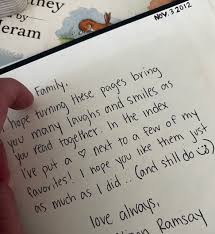 they
by
eram
Nov. 3 2012
Family,
I hope turning these pages bring
you many laughs and smiles as
you read together. In the index
I've put a ♡ next to a few of my
favorites! I hope you like them just
as much as I did... (and still do :))
love always,
Ramsay